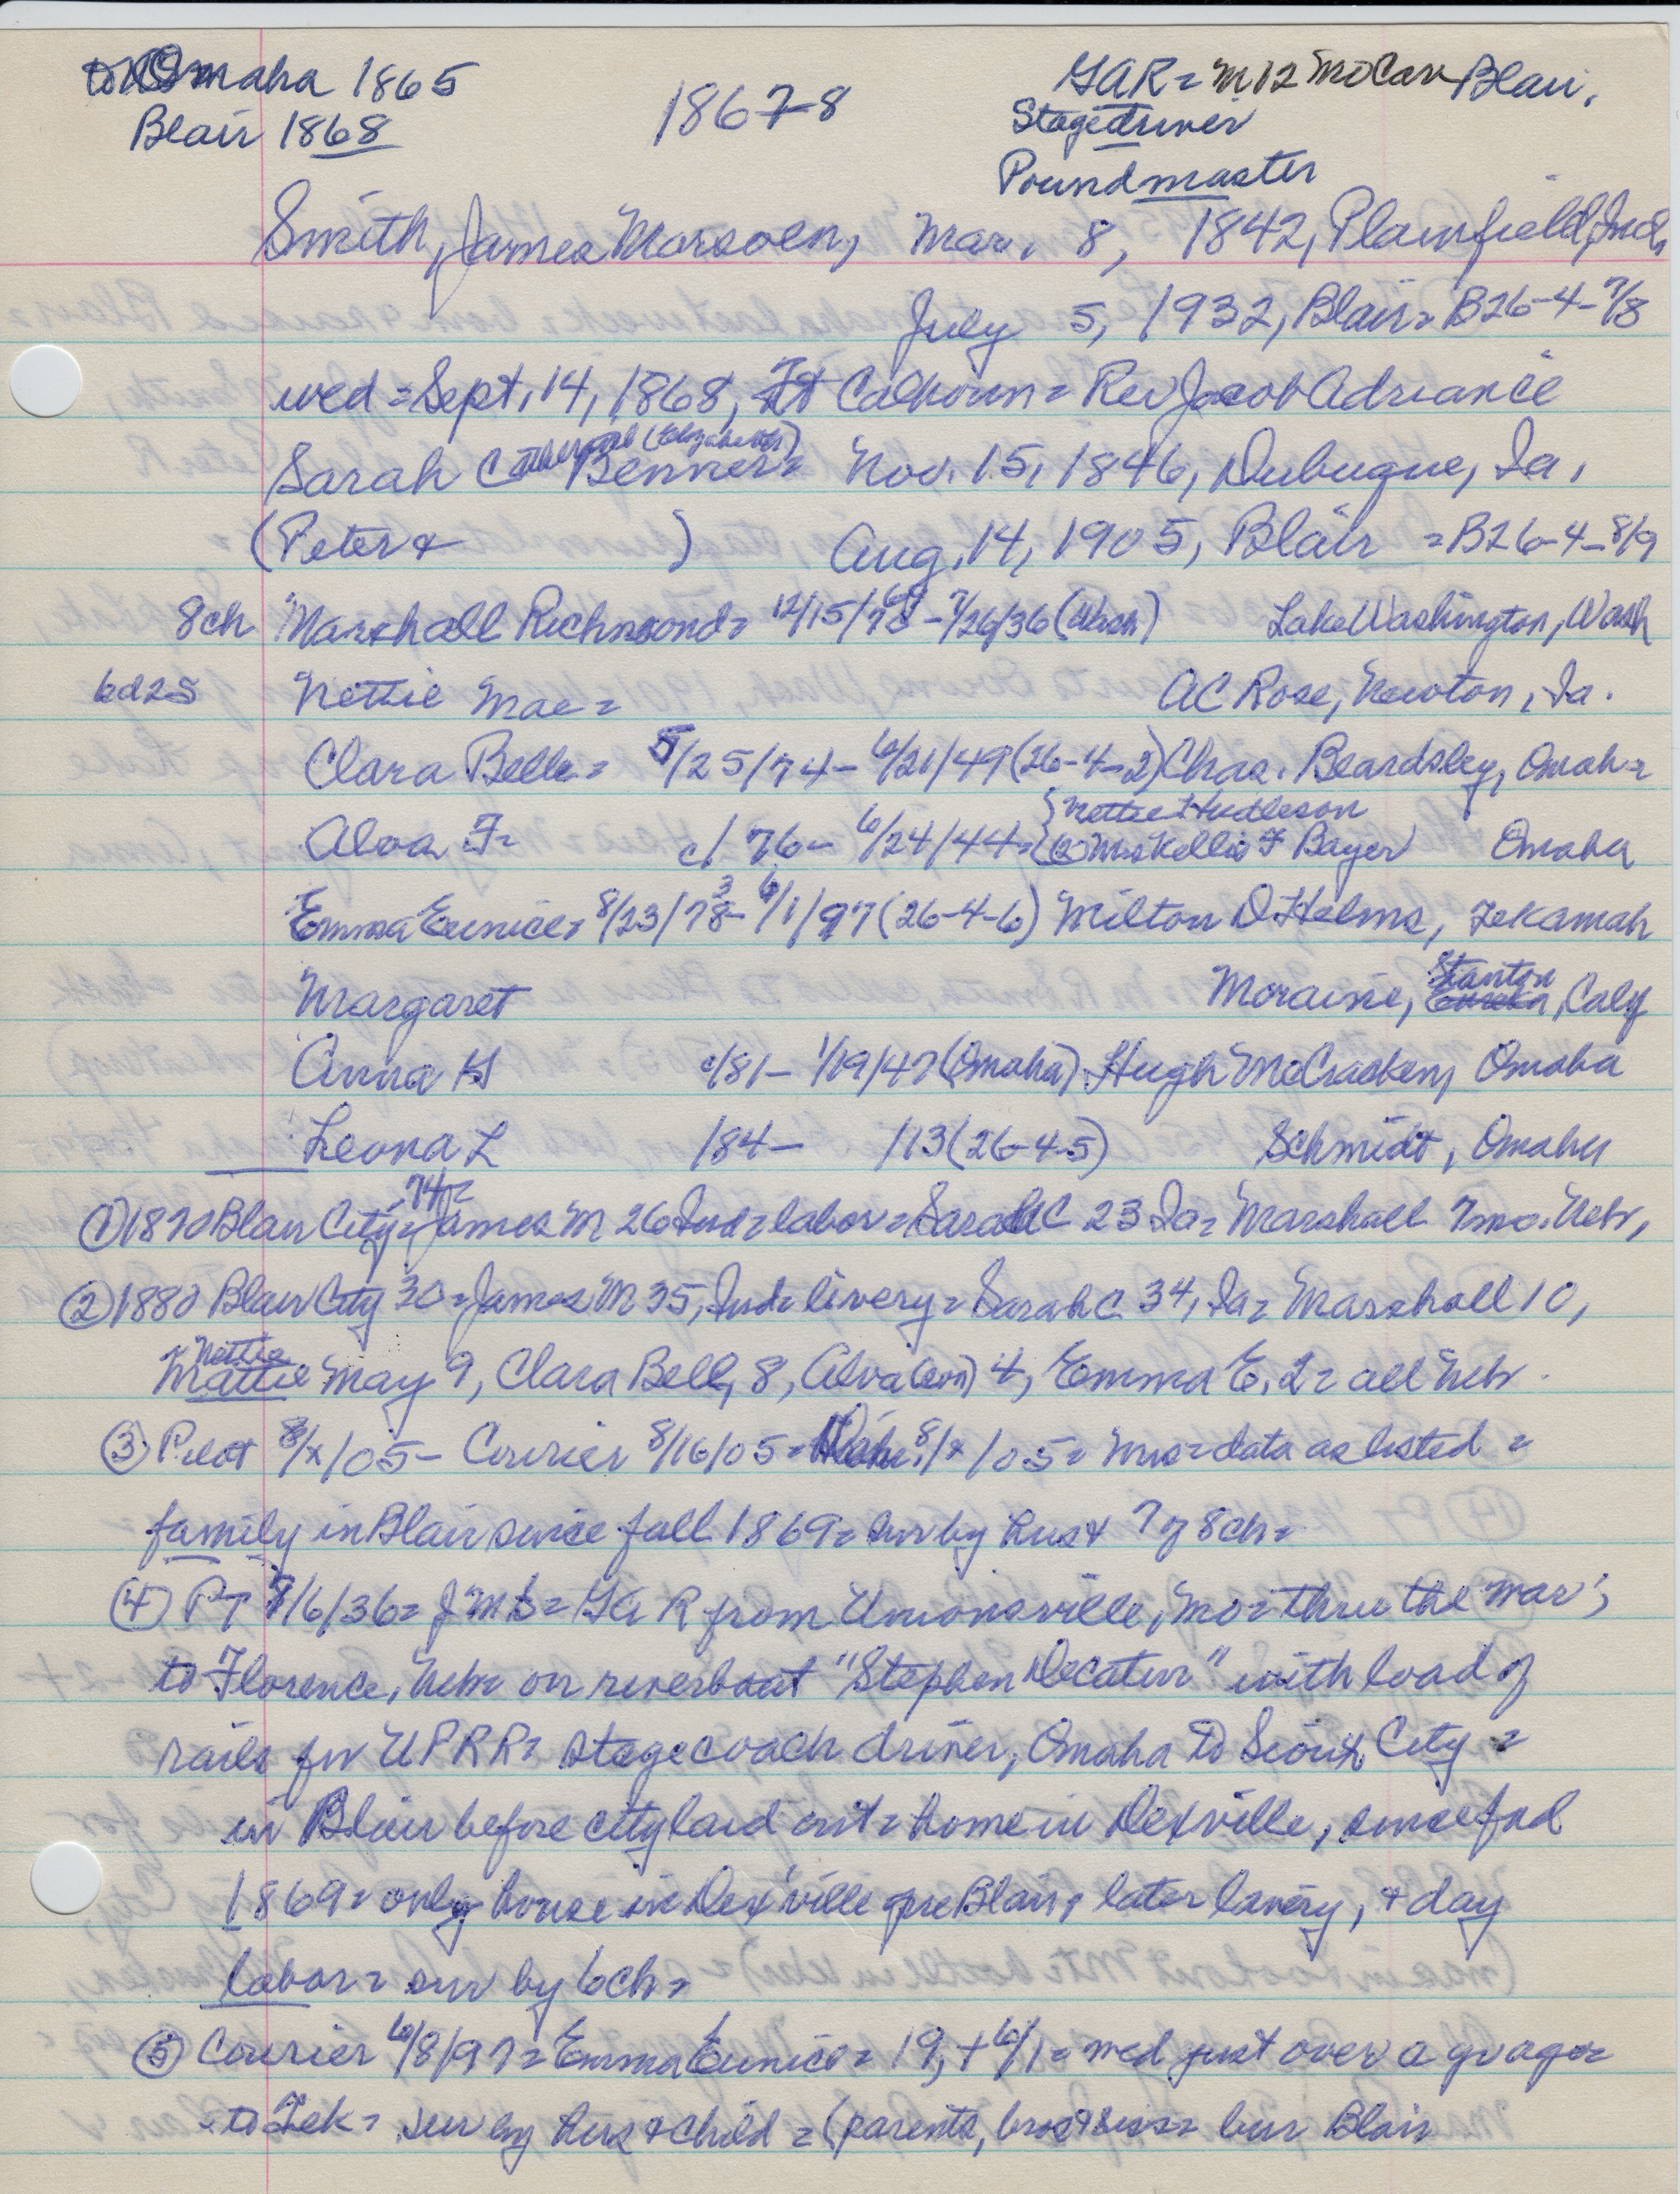 to Omaha 1865
Blair 1868
1867-8
GAR = M 12 Mo Cav Blair,
Stagedriver
Poundmaster
Smith, James Marsden, Mar. 8, 1842, Plainfield, Ind,
July 5, 1932, Blair = B26-4-7/8
wed = Sept. 14, 1868, Ft Calhoun = Rev Jacob Adriance
Sarah Catherine (Elizabeth) Benner = Nov. 15, 1846, Dubuque, Ia,
(Peter & ) Aug. 14, 1905, Blair = B26-4-8/9
8ch Marshall Richmond = 12/15/ - 7/26/36 (Wash) Lake Washington, Wash
Nettie Mae = AC Rose, Newton, Ia.
Clara Belle = 5/25/74 - 6/21/49 (26-4-2) Chas. Beardsley, Omaha =
Alva F = c/76 - 6/24/44 = { Nettie Hudleson
(2) Mrs F Bayer Omaha
Emma Eunice = 8/23/78 - 6/1/97 (26-4-6) Milton D Helms, Tekamah
Margaret Moraine, Stanton, Calif
Anna c/81 - 1/19/47 (Omaha) Hugh McCracken, Omaha
Leona L /84 - /13 (26-4-5) Schmidt, Omaha
① 1870 Blair City = 74 = James M 26 Ind = labor = Sarah C 23 Ia = Marshall 7 mo. Nebr,
② 1880 Blair City 30 = James M 35, Ind = livery = Sarah C 34, Ia = Marshall 10,
Mattie Nettie May 9, Clara Bell, 8, Alva (son) 4, Emma E, 2 = all Nebr.
③ Pilot 8/x/05 - Courier 8/16/05 = 8/x/05 = Mrs = data as listed =
family in Blair since fall 1869 = sur by hus & 7 of 8 ch =
④ PT 7/6/36 = J M S = GAR from Unionsville, Mo = thru the war;
to Florence, Nebr on riverboat "Stephen Decatur" with load of
rails for UPRR = stagecoach driver, Omaha to Sioux City =
in Blair before city laid out = home in Dexville, since fall
1869 = only house in Dexville pre Blair, later livery, & day
labor = sur by 6 ch =
⑤ Courier 6/8/97 = Emma Eunice = 19, + 6/1 = wed just over a yr ago =
to Tek = sur by hus & child = (parents, bros & sis = bur Blair